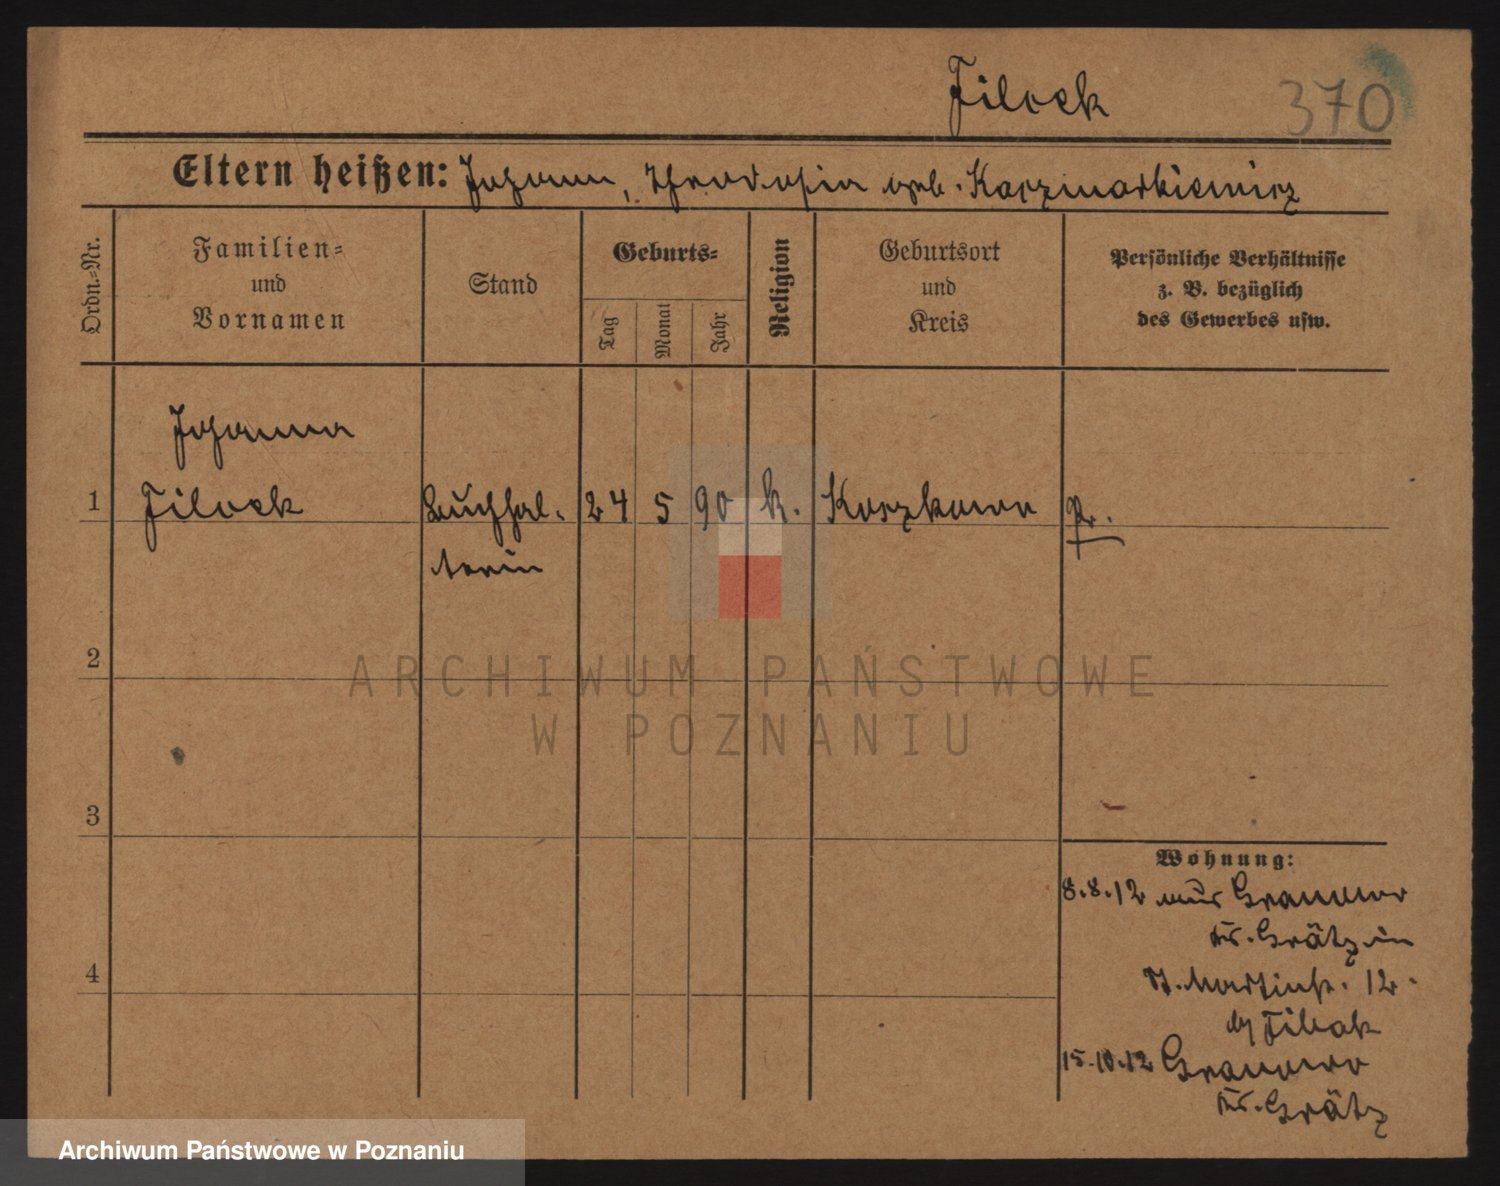 Filock
370
Eltern heißen: Johann, Theodosia geb. Kaczmarkiewicz
Ordn.-Nr.
Familien-
und
Vornamen
Stand
Geburts-
Tag
Monat
Jahr
Religion
Geburtsort
und
Kreis
Persönliche Verhältnisse
z. B. bezüglich
des Gewerbes usw.
Johanna
1 Filock Buchhal- 24 5 90 k. Koszkowo Pr.
terin
2
ARCHIWUM PAŃSTWOWE
W POZNANIU
3
Wohnung:
8.8.12 aus Granowo
Kr. Grätz in
4
St. Martinstr. 12.
by Filock
15.10.12 Granowo
Kr. Grätz
Archiwum Państwowe w Poznaniu